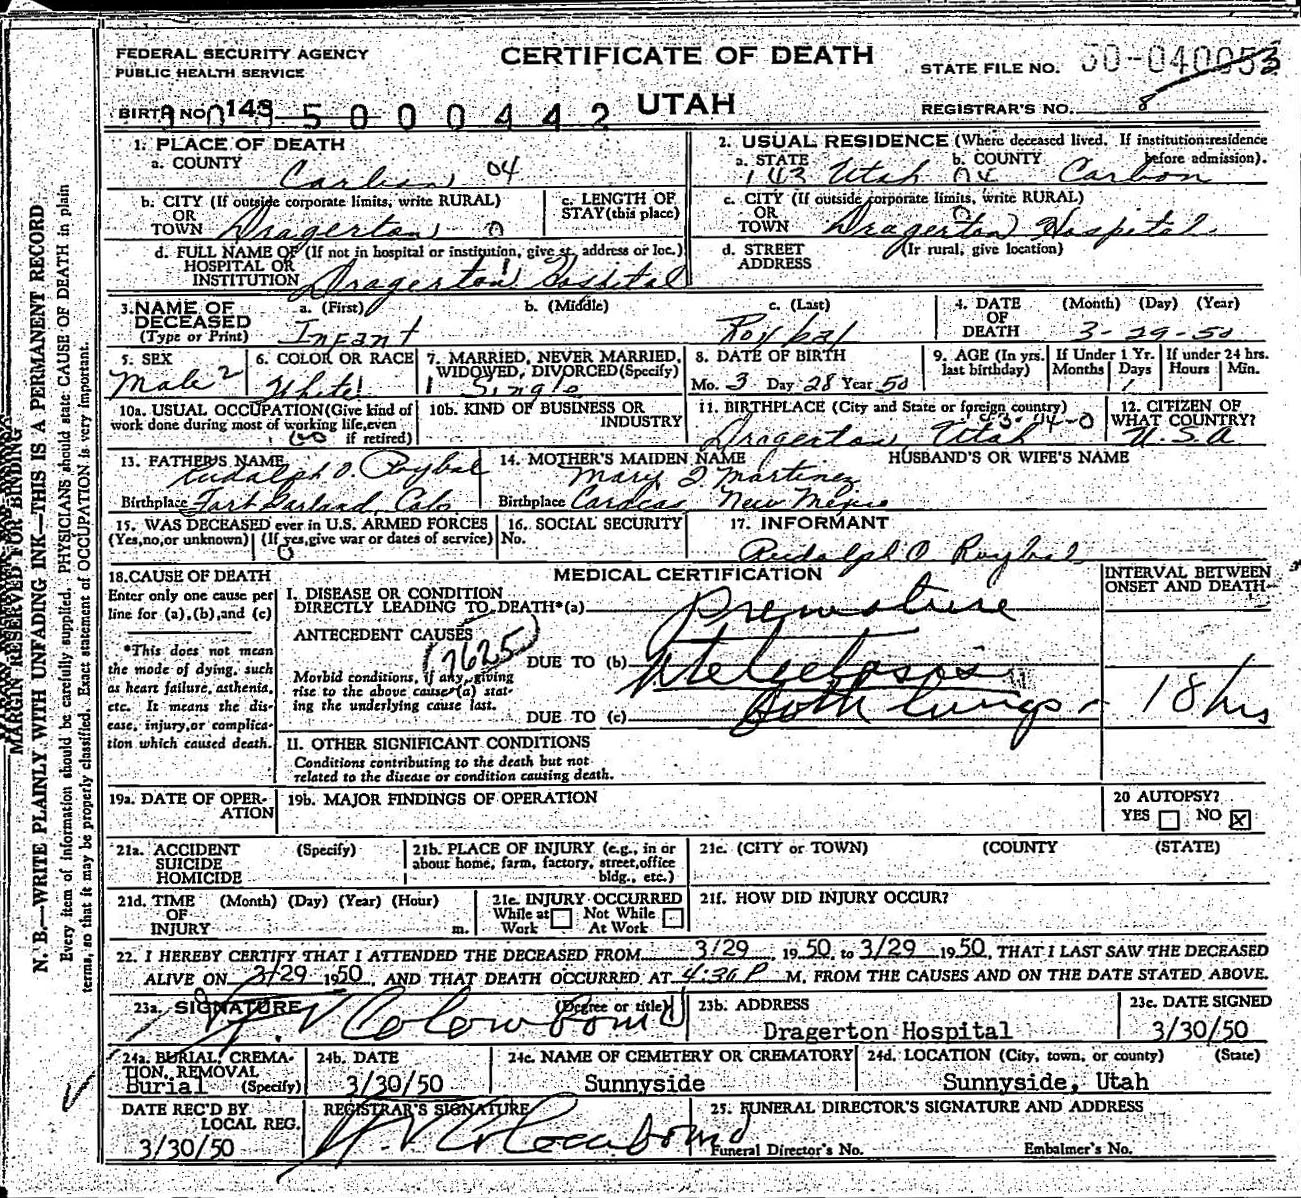 FEDERAL SECURITY AGENCY
PUBLIC HEALTH SERVICE
CERTIFICATE OF DEATH
UTAH
STATE FILE NO. 50-040053
REGISTRAR'S NO. 8
BIRTH NO. 143 5 0 0 0 4 4 2
1. PLACE OF DEATH
a. COUNTY Carbon 04
2. USUAL RESIDENCE (Where deceased lived. If institution: residence before admission).
a. STATE 143 Utah b. COUNTY 04 Carbon
b. CITY (If outside corporate limits, write RURAL) OR TOWN Dragerton 0
c. LENGTH OF STAY (this place)
c. CITY (If outside corporate limits, write RURAL) OR TOWN Dragerton Hospital 0
d. FULL NAME OF (If not in hospital or institution, give st. address or loc.) HOSPITAL OR INSTITUTION Dragerton Hospital
d. STREET ADDRESS (If rural, give location)
3. NAME OF DECEASED (Type or Print) a. (First) Infant b. (Middle) c. (Last) Roybal
4. DATE OF DEATH (Month) (Day) (Year) 3-29-50
5. SEX Male 2
6. COLOR OR RACE White 1
7. MARRIED, NEVER MARRIED, WIDOWED, DIVORCED (Specify) 1 Single
8. DATE OF BIRTH Mo. 3 Day 28 Year 50
9. AGE (In yrs. last birthday) If Under 1 Yr. Months Days 1 If under 24 hrs. Hours Min.
10a. USUAL OCCUPATION (Give kind of work done during most of working life, even if retired)
10b. KIND OF BUSINESS OR INDUSTRY
11. BIRTHPLACE (City and State or foreign country) Dragerton Utah
12. CITIZEN OF WHAT COUNTRY? U.S.A
13. FATHER'S NAME Rudalph O. Roybal
Birthplace Fort Garland, Colo.
14. MOTHER'S MAIDEN NAME Mary I Martinez
Birthplace New Mexico
HUSBAND'S OR WIFE'S NAME
15. WAS DECEASED ever in U.S. ARMED FORCES (Yes, no, or unknown) (If yes, give war or dates of service) 0
16. SOCIAL SECURITY No.
17. INFORMANT
Rudalph O Roybal
18. CAUSE OF DEATH
Enter only one cause per line for (a), (b), and (c)
*This does not mean the mode of dying, such as heart failure, asthenia, etc. It means the disease, injury, or complication which caused death.
MEDICAL CERTIFICATION
I. DISEASE OR CONDITION DIRECTLY LEADING TO DEATH*(a) Premature
ANTECEDENT CAUSES 7625
Morbid conditions, if any, giving rise to the above cause (a) stating the underlying cause last.
DUE TO (b) Atelectosis
DUE TO (c) Both lungs -
INTERVAL BETWEEN ONSET AND DEATH
18 hrs
II. OTHER SIGNIFICANT CONDITIONS
Conditions contributing to the death but not related to the disease or condition causing death.
19a. DATE OF OPERATION
19b. MAJOR FINDINGS OF OPERATION
20 AUTOPSY? YES NO X
21a. ACCIDENT SUICIDE HOMICIDE (Specify)
21b. PLACE OF INJURY (e.g., in or about home, farm, factory, street, office bldg., etc.)
21c. (CITY OR TOWN) (COUNTY (STATE)
21d. TIME OF INJURY (Month) (Day) (Year) (Hour) m.
21e. INJURY OCCURRED While at Work Not While At Work
21f. HOW DID INJURY OCCUR?
22. I HEREBY CERTIFY THAT I ATTENDED THE DECEASED FROM 3/29, 1950, to 3/29 1950, THAT I LAST SAW THE DECEASED
ALIVE ON 3/29 1950, AND THAT DEATH OCCURRED AT 4:30 P M. FROM THE CAUSES AND ON THE DATE STATED ABOVE.
23a. SIGNATURE (Degree or title)
23b. ADDRESS
Dragerton Hospital
23c. DATE SIGNED
3/30/50
24a. BURIAL, CREMATION, REMOVAL (Specify) Burial
24b. DATE
3/30/50
24c. NAME OF CEMETERY OR CREMATORY
Sunnyside
24d. LOCATION (City, town, or county) (State)
Sunnyside, Utah
DATE REC'D BY LOCAL REG.
3/30/50
REGISTRAR'S SIGNATURE
25. FUNERAL DIRECTOR'S SIGNATURE AND ADDRESS
Funeral Director's No. Embalmer's No.
MARGIN RESERVED FOR BINDING
N. B.—WRITE PLAINLY WITH UNFADING INK—THIS IS A PERMANENT RECORD
Every item of information should be carefully supplied. PHYSICIANS should state CAUSE OF DEATH in plain
terms, so that it may be properly classified. Exact statement of OCCUPATION is very important.